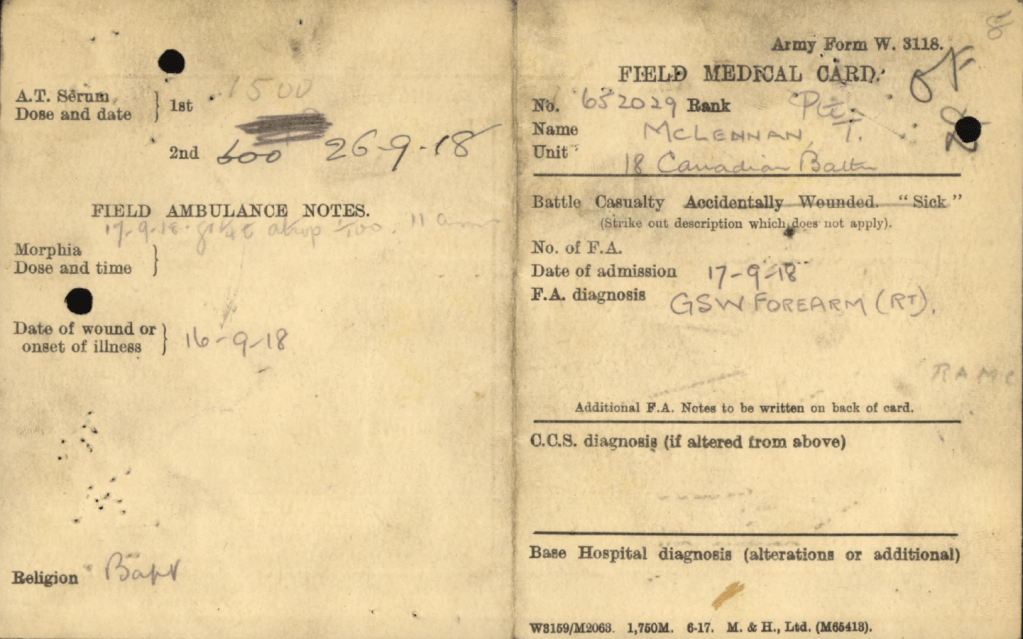 A.T. Serum,
Dose and date } 1st 1500
2nd 600 26-9-18
FIELD AMBULANCE NOTES.
17-9-18 11 am
Morphia
Dose and time }
Date of wound or
onset of illness } 16-9-18
Religion Bapt
8
Army Form W. 3118.
FIELD MEDICAL CARD.
No. 652029 Rank Pte.
Name McLENNAN, T.
Unit 18 Canadian Battn
Battle Casualty Accidentally Wounded. "Sick"
(Strike out description which does not apply).
No. of F.A.
Date of admission 17-9-18
F.A. diagnosis GSW FOREARM (RT).
RAMC
Additional F.A. Notes to be written on back of card.
C.C.S. diagnosis (if altered from above)
Base Hospital diagnosis (alterations or additional)
W3159/M2063. 1,750M. 6-17. M. & H., Ltd. (M65413).